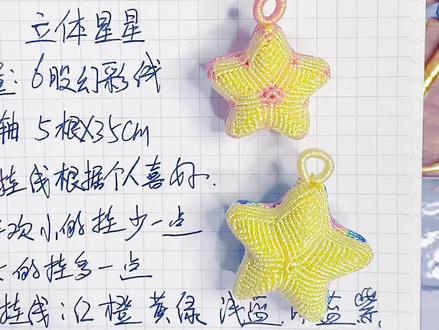 立体星星
量：6股幻彩线
轴 5根X35cm
挂线根据个人喜好.
欢小的挂少一点
大的挂多一点
挂线：红 橙 黄绿 浅蓝 蓝 紫